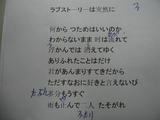 ラブストーリーは突然に
何から つためばいいのか
わからないまま 時は流れて
浮かんでは 消えてゆく
ありふれたことばだけ
君があんまりすてきだから
ただすなおに 好きと言えないで
多分もうすぐ
雨も止んで二人 たそがれ